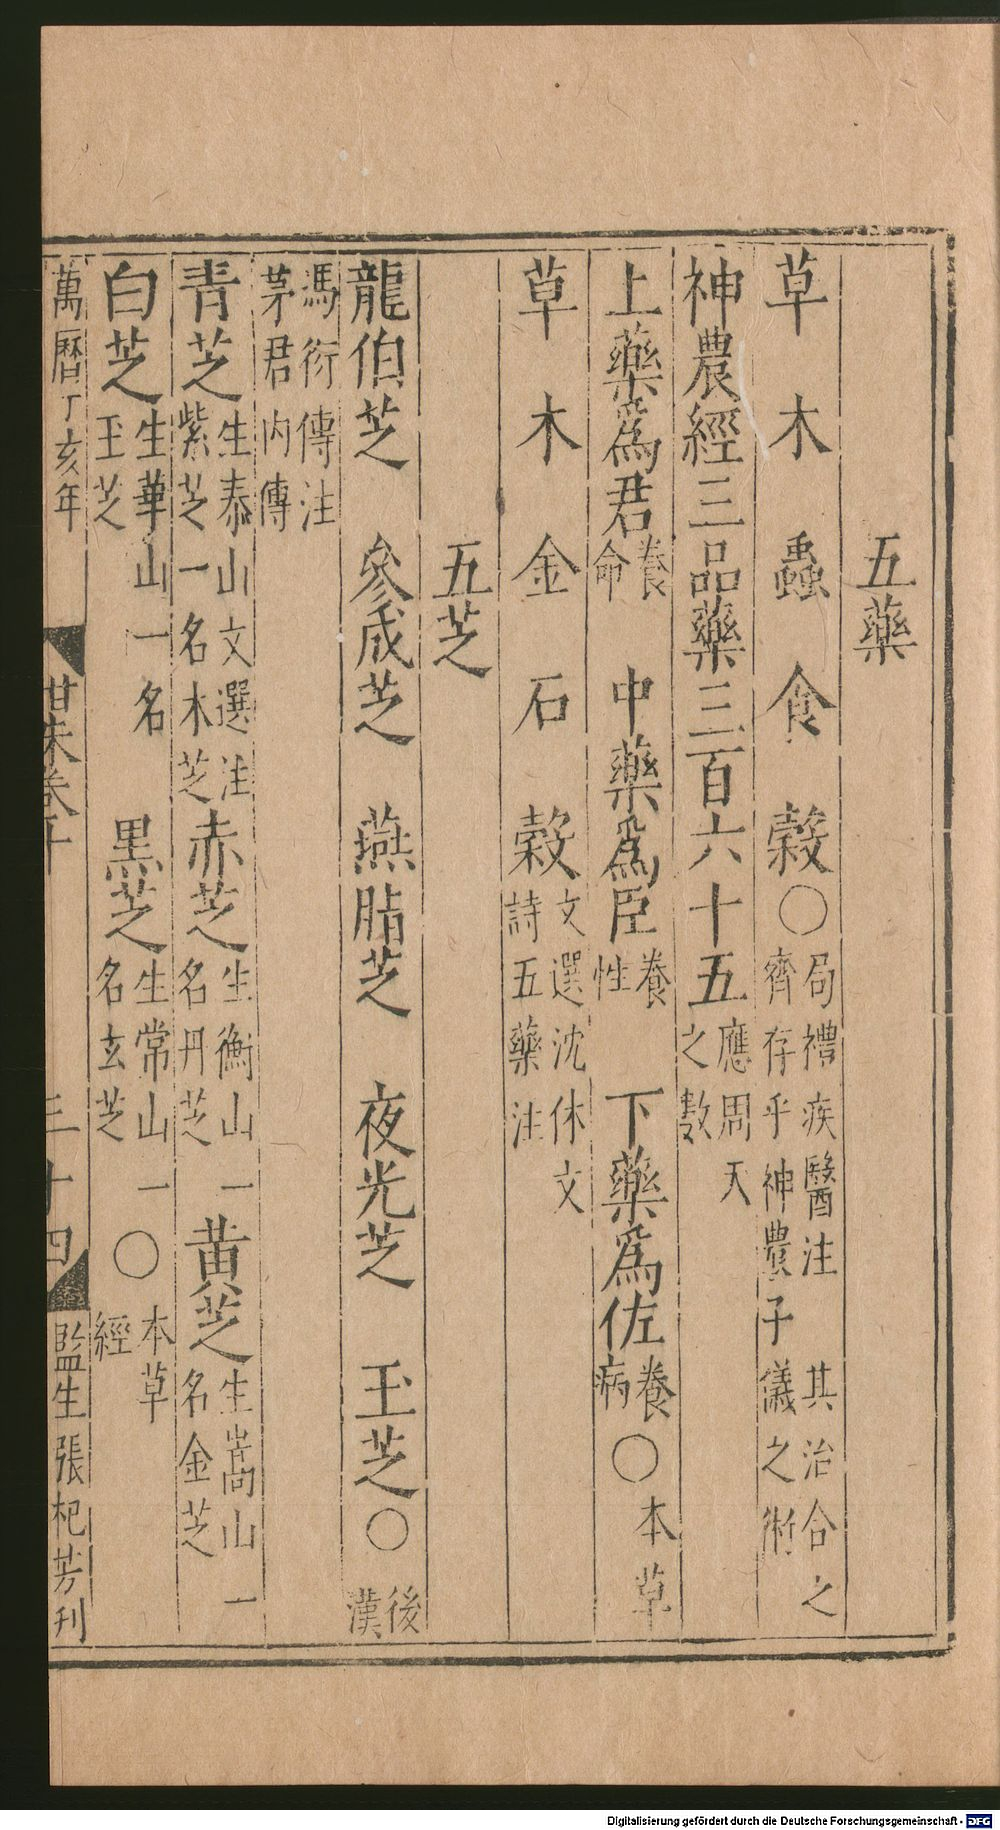 五藥
草木蟲食穀〇局禮疾醫注其治合之齊存乎神農子儀之術
神農經三品藥三百六十五應周天之數
上藥爲君養命 中藥爲臣養性 下藥爲佐養病〇本草
草木金石穀文選沈休文詩五藥注
五芝
龍伯芝 參成芝 燕脂芝 夜光芝 玉芝〇後漢
馮衍傳注茅君内傳
青芝生泰山文選注紫芝一名木芝赤芝生衡山一名丹芝黄芝生嵩山一名金芝
白芝生華山一名玉芝 黑芝生常山一名玄芝〇本草經
萬曆丁亥年 卷十 三十四 監生張杞芳刊
Digitalisierung gefördert durch die Deutsche Forschungsgemeinschaft - DFG